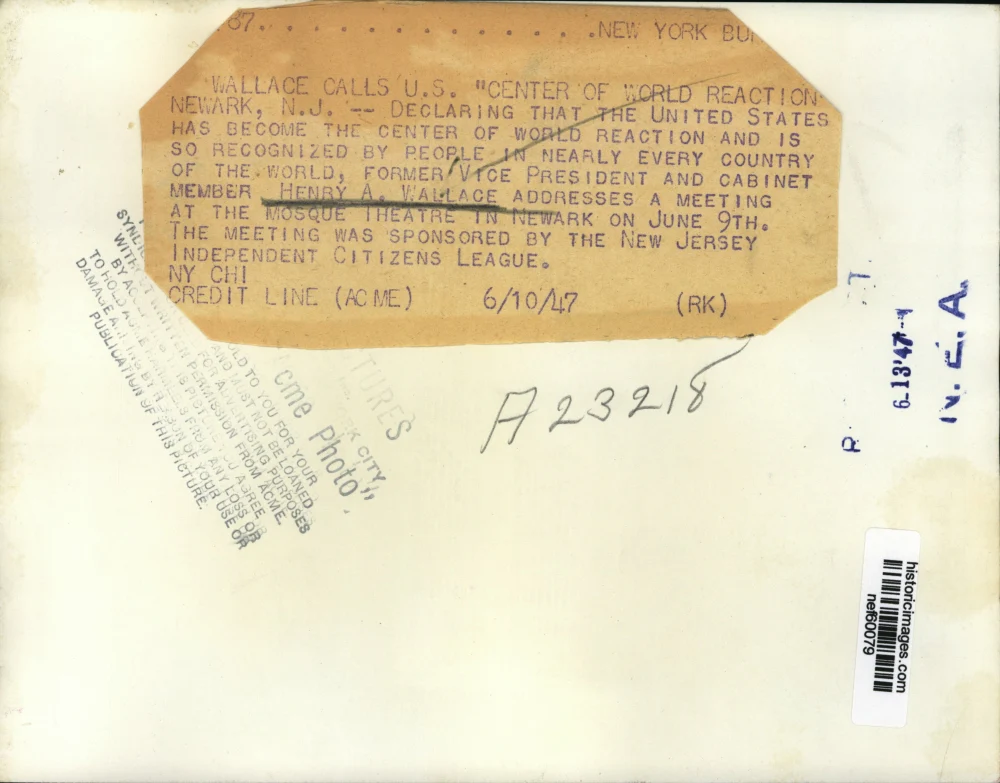 37. . . . . . . . . . . . . .NEW YORK
WALLACE CALLS U.S. "CENTER OF WORLD REACTION
NEWARK, N.J. -- DECLARING THAT THE UNITED STATES
HAS BECOME THE CENTER OF WORLD REACTION AND IS
SO RECOGNIZED BY PEOPLE IN NEARLY EVERY COUNTRY
OF THE WORLD, FORMER VICE PRESIDENT AND CABINET
MEMBER HENRY A. WALLACE ADDRESSES A MEETING
AT THE MOSQUE THEATRE IN NEWARK ON JUNE 9TH.
THE MEETING WAS SPONSORED BY THE NEW JERSEY
INDEPENDENT CITIZENS LEAGUE.
NY CHI
CREDIT LINE (ACME) 6/10/47 (RK)
A23218
TURES
K CITY,
cme Photo"
OLD TO YOU FOR YOUR
AND MUST NOT BE LOANED
FOR ADVERTISING PURPOSES
WRITTEN PERMISSION FROM ACME.
AGREE
TO HOLD FROM ANY LOSS OR
DAMAGE BY REASON OF YOUR USE OR
PUBLICATION OF THIS PICTURE.
6-13'47-
N. E. A.
historicimages.com
nef60079